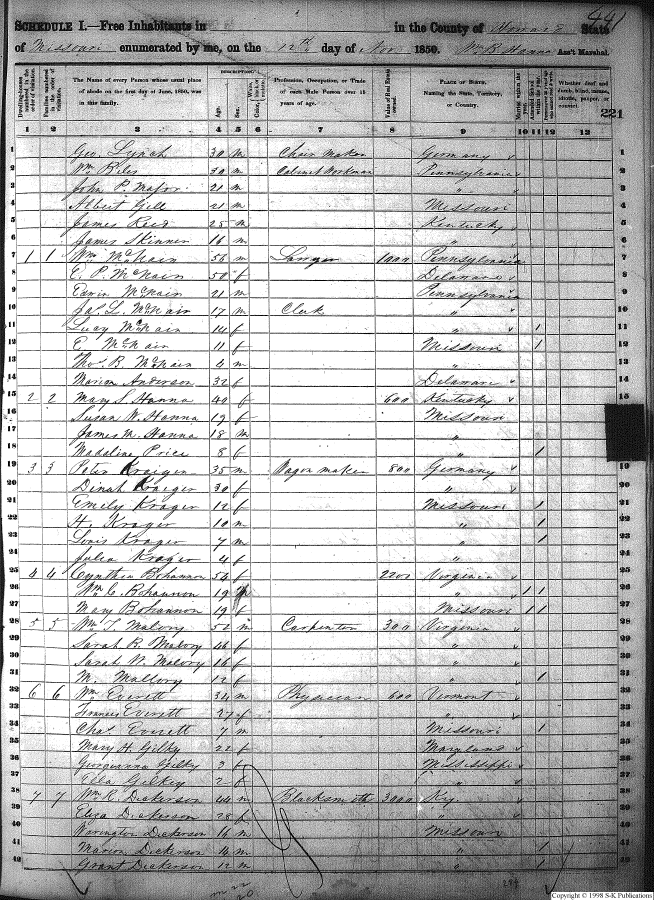 441
SCHEDULE I.—Free Inhabitants in in the County of Monroe State
of Missouri enumerated by me, on the 12th day of Nov 1850. Wm B Hanna Ass't Marshal.
Dwelling-houses numbered in the order of visitation.
Families numbered in the order of visitation.
The Name of every Person whose usual place of abode on the first day of June, 1850, was in this family.
DESCRIPTION.
Age.
Sex.
White, black, or mulatto.
Color,
Profession, Occupation, or Trade of each Male Person over 15 years of age.
Value of Real Estate owned.
PLACE OF BIRTH.
Naming the State, Territory, or Country.
Whether deaf and dumb, blind, insane, idiotic, pauper, or convict.
221
1 2 3 4 5 6 7 8 9 10 11 12 13
1 Geo. Lynch 30 m Chair Maker Germany 1
2 Wm Biles 30 m Cabinet Workman Pennsylvania 2
3 John P. Major 21 m " 3
4 Albert Gill 21 m Missouri 4
5 James Reid 25 m Kentucky 5
6 James Skinner 16 m " 6
7 1 1 Wm McNair 56 m 1000 Pennsylvania 7
8 E. P. McNair 50 f Delaware 8
9 Edwin McNair 21 m Pennsylvania 9
10 Jas. L. McNair 17 m Clerk " 10
11 Lucy McNair 14 f " 1 11
12 E McNair 11 f Missouri 1 12
13 Thos. B. McNair 4 m " 13
14 Marian Anderson 32 f Delaware 14
15 2 2 Mary S. Hanna 40 f 600 Kentucky 15
16 Susan W. Hanna 19 f Missouri 16
17 James M. Hanna 18 m " 17
18 Madaline Price 8 f " 1 18
19 3 3 Peter Kraiger 35 m Wagon maker 800 Germany 19
20 Dinah Kraeger 30 f " 20
21 Emily Krager 12 f Missouri 1 21
22 H. Krager 10 m " 1 22
23 Louis Krager 7 m " 1 23
24 Julia Krager 4 f " 24
25 4 4 Cynthia Bohannon 54 f 2200 Virginia 25
26 Wm C. Bohannon 19 " 1 1 26
27 Mary Bohannon 19 f Missouri 1 1 27
28 5 5 Wm T. Malory 50 m Carpenter 300 Virginia 28
29 Sarah B. Malory 46 f " 29
30 Sarah W. Malory 16 f " 30
31 M. Mallory 12 f " 1 31
32 6 6 Wm Everett 34 m Physician 600 Vermont 32
33 Frances Everett 27 f " 33
34 Chas. Everett 7 m Missouri 1 34
35 Mary H. Gilky 22 f Maryland 35
36 Georgianna Gilky 3 f Mississippi 36
37 Ella Gilkey 2 f " 37
38 7 7 Wm R. Dickerson 44 m Blacksmith 3000 Ky. 38
39 Eliza Dickerson 28 f " 39
40 Dickerson 16 m Missouri 40
41 Marion Dickerson 14 m " 1 41
42 Grant Dickerson 12 m " 1 42
m 22
20
Copyright © 1998 S-K Publications